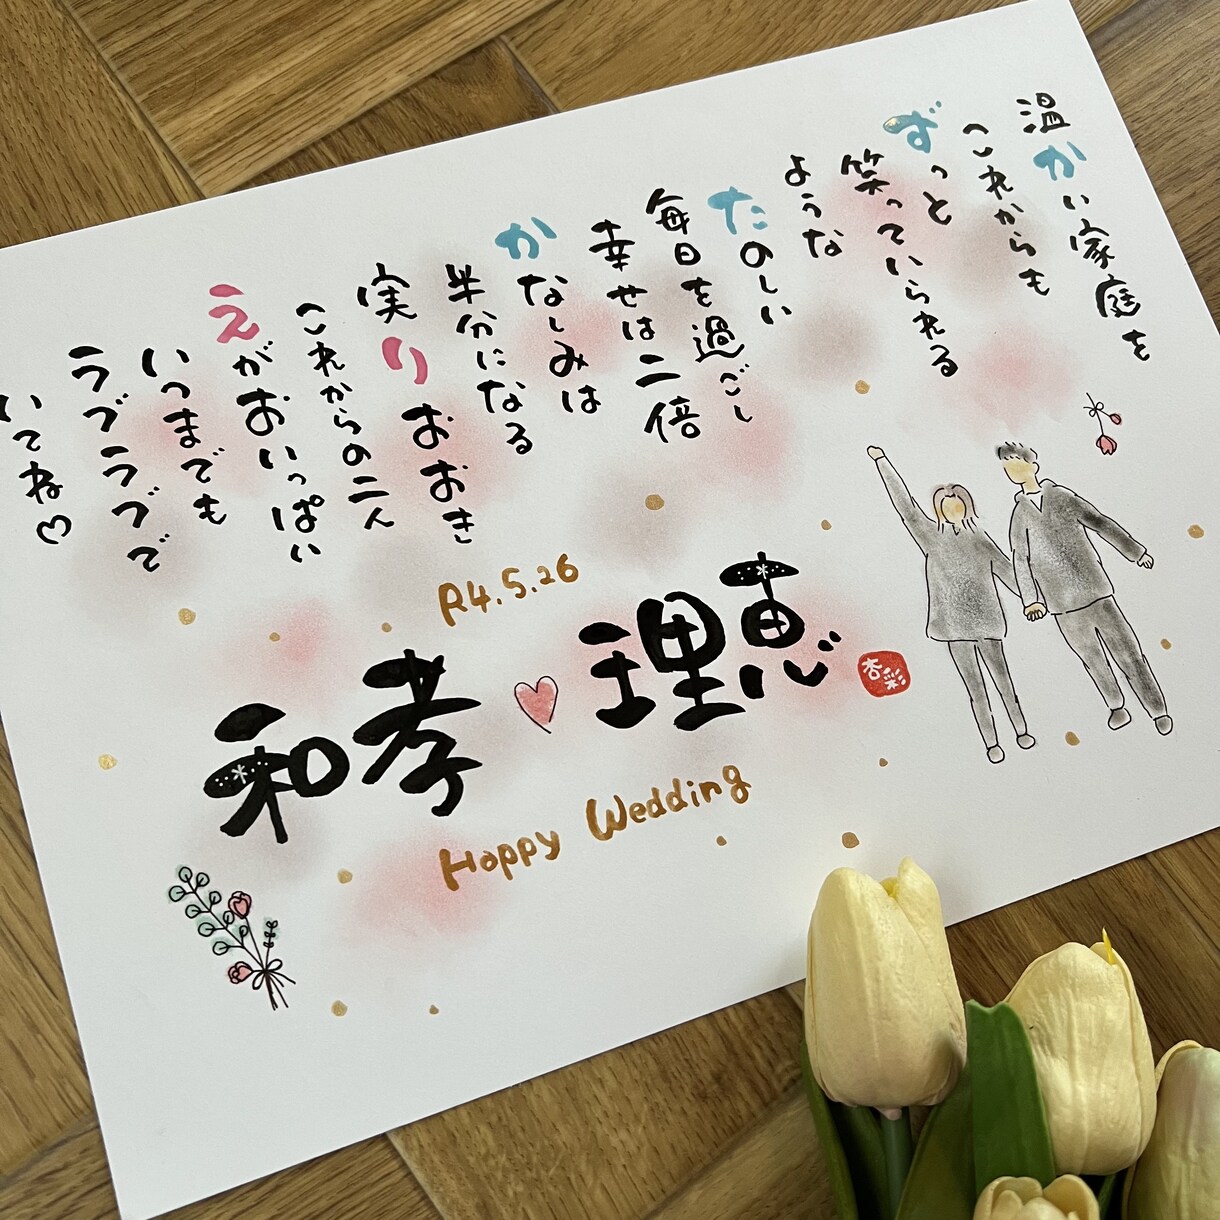 温かい家庭を
これからも
ずっと
笑っていられる
ような
たのしい
毎日を過ごし
幸せは二倍
かなしみは
半分になる
実りおおき
これからの二人
えがおいっぱい
いつまでも
ラブラブで
いてね♡
R4.5.26
和孝♡理恵
杏彩
Happy Wedding